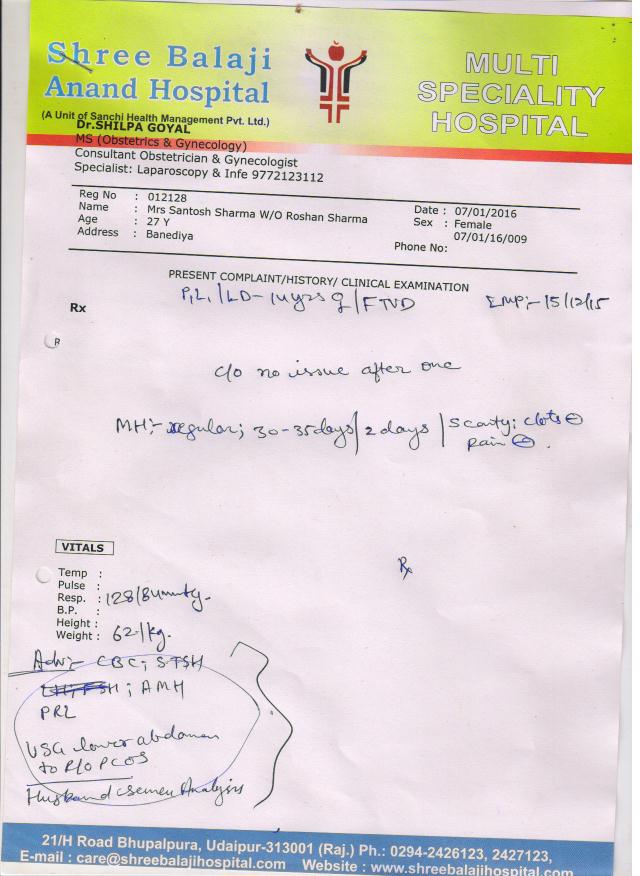 Shree Balaji
Anand Hospital
(A Unit of Sanchi Health Management Pvt. Ltd.)
MULTI
SPECIALITY
HOSPITAL
Dr.SHILPA GOYAL
MS (Obstetrics & Gynecology)
Consultant Obstetrician & Gynecologist
Specialist: Laparoscopy & Infe 9772123112
Reg No : 012128
Name : Mrs Santosh Sharma W/O Roshan Sharma
Age : 27 Y
Address : Banediya
Date : 07/01/2016
Sex : Female
07/01/16/009
Phone No:
PRESENT COMPLAINT/HISTORY/ CLINICAL EXAMINATION
P1L1/LD- 14yrs /FTVD :- 15/12/15
Rx
R
c/o no issue after one
MH:- regular; 30-35days/2 days / Scanty; clots ⊖
pain ⊖.
VITALS
Rx
Temp :
Pulse :
Resp. :
B.P. : 128/
Height :
Weight : 62/kg.
Adv:- CBC; S.TSH
; AMH
PRL
USG lower abdomen
to R/O PCOS
Husband semen Analysis
21/H Road Bhupalpura, Udaipur-313001 (Raj.) Ph.: 0294-2426123, 2427123,
E-mail : care@shreebalajihospital.com Website : www.shreebalajihospital.com